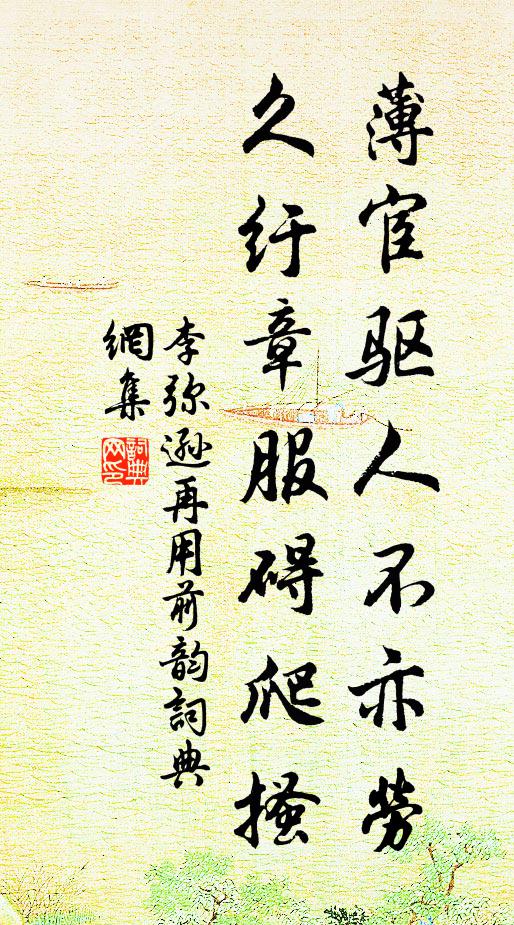 薄宦驱人不亦劳
久纡章服碍爬搔
李弥逊再用前韵詞典
網集
詞典网印